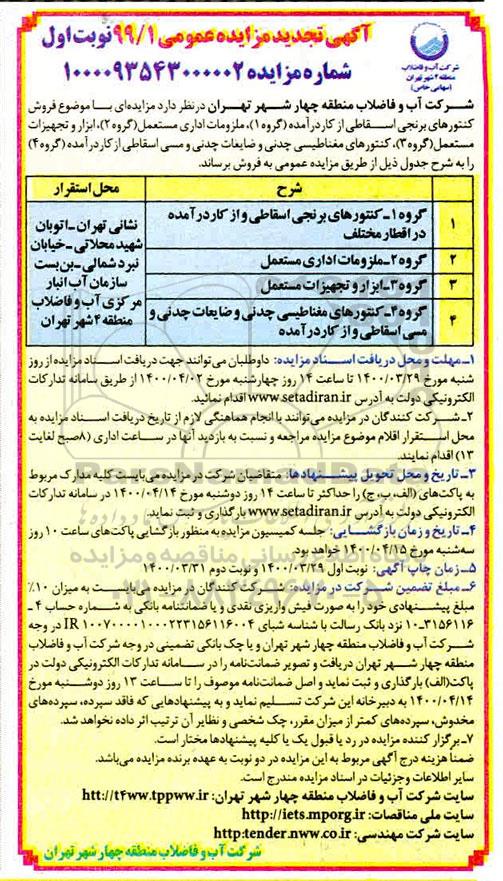 آگهی تجدید مزایده عمومی ۹۹/۱ نوبت اول
شماره مزایده ۱۰۰۰۰۹۳۵۴۳۰۰۰۰۰۲
شرکت آب و فاضلاب
منطقه ۴ شهر تهران
(سهامی خاص)
شرکت آب و فاضلاب منطقه چهار شهر تهران درنظر دارد مزایده‌ای با موضوع فروش
کنتورهای برنجی اسقاطی از کار درآمده (گروه ۱)، ملزومات اداری مستعمل (گروه ۲)، ابزار و تجهیزات
مستعمل (گروه ۳)، کنتورهای مغناطیسی چدنی و ضایعات چدنی و مسی اسقاطی از کار درآمده (گروه ۴)
را به شرح جدول ذیل از طریق مزایده عمومی به فروش برساند.
شرح
محل استقرار
۱
گروه ۱- کنتورهای برنجی اسقاطی و از کار درآمده
در اقطار مختلف
۲
گروه ۲- ملزومات اداری مستعمل
۳
گروه ۳- ابزار و تجهیزات مستعمل
۴
گروه ۴- کنتورهای مغناطیسی چدنی و ضایعات چدنی و
مسی اسقاطی و از کار درآمده
نشانی تهران - اتوبان
شهید محلاتی - خیابان
نبرد شمالی - بن‌بست
سازمان آب انبار
مرکزی آب و فاضلاب
منطقه ۴ شهر تهران
۱- مهلت و محل دریافت اسناد مزایده: داوطلبان می‌توانند جهت دریافت اسناد مزایده از روز
شنبه مورخ ۱۴۰۰/۰۳/۲۹ تا ساعت ۱۴ روز چهارشنبه مورخ ۱۴۰۰/۰۴/۰۲ از طریق سامانه تدارکات
الکترونیکی دولت به آدرس www.setadiran.ir اقدام نمائید.
۲- شرکت کنندگان در مزایده می‌توانند با انجام هماهنگی لازم از تاریخ دریافت اسناد مزایده به
محل استقرار اقلام موضوع مزایده مراجعه و نسبت به بازدید آنها در ساعات اداری (۸صبح لغایت
۱۳) اقدام نمایند.
۳- تاریخ و محل تحویل پیشنهادها: متقاضیان شرکت در مزایده می‌بایست کلیه مدارک مربوط
به پاکت‌های (الف، ب، ج) را حداکثر تا ساعت ۱۴ روز دوشنبه مورخ ۱۴۰۰/۰۴/۱۴ در سامانه تدارکات
الکترونیکی دولت به آدرس www.setadiran.ir بارگذاری و ثبت نماید.
۴- تاریخ و زمان بازگشایی: جلسه کمیسیون مزایده به منظور بازگشایی پاکت‌های ساعت ۱۰ روز
سه‌شنبه مورخ ۱۴۰۰/۰۴/۱۵ خواهد بود.
۵- زمان چاپ آگهی: نوبت اول ۱۴۰۰/۰۳/۲۹ و نوبت دوم ۱۴۰۰/۰۳/۳۱
۶- مبلغ تضمین شرکت در مزایده: شرکت کنندگان در مزایده می‌بایست به میزان ۱۰٪
مبلغ پیشنهادی خود را به صورت فیش واریزی نقدی و یا ضمانتنامه بانکی به شماره حساب ۴ -
۱۰-۳۱۵۶۱۱۶ نزد بانک رسالت با شناسه شبای IR ۱۰۰۷۰۰۰۰۱۰۰۰۲۲۳۱۵۶۱۱۶۰۰۴ در وجه
شرکت آب و فاضلاب منطقه چهار شهر تهران و یا چک بانکی تضمینی در وجه شرکت آب و فاضلاب
منطقه چهار شهر تهران دریافت و تصویر ضمانت‌نامه را در سامانه تدارکات الکترونیکی دولت در
پاکت(الف) بارگذاری و ثبت نماید و اصل ضمانت‌نامه موصوف را تا ساعت ۱۳ روز دوشنبه مورخ
۱۴۰۰/۰۴/۱۴ به دبیرخانه این شرکت تسلیم نماید و به پیشنهادهایی که فاقد سپرده، سپرده‌های
مخدوش، سپرده‌های کمتر از میزان مقرر، چک شخصی و نظایر آن ترتیب اثر داده نخواهد شد.
۷- برگزار کننده مزایده در رد یا قبول یک یا کلیه پیشنهادها مختار است.
ضمنا هزینه درج آگهی مربوط به این مزایده در دو نوبت به عهده برنده مزایده می‌باشد.
سایر اطلاعات و جزئیات در اسناد مزایده مندرج است.
سایت شرکت آب و فاضلاب منطقه چهار شهر تهران: htt://t۴ww.tppww.ir
سایت ملی مناقصات: http://iets.mporg.ir
سایت شرکت مهندسی: http:tender.nww.co.ir
شرکت آب و فاضلاب منطقه چهار شهر تهران